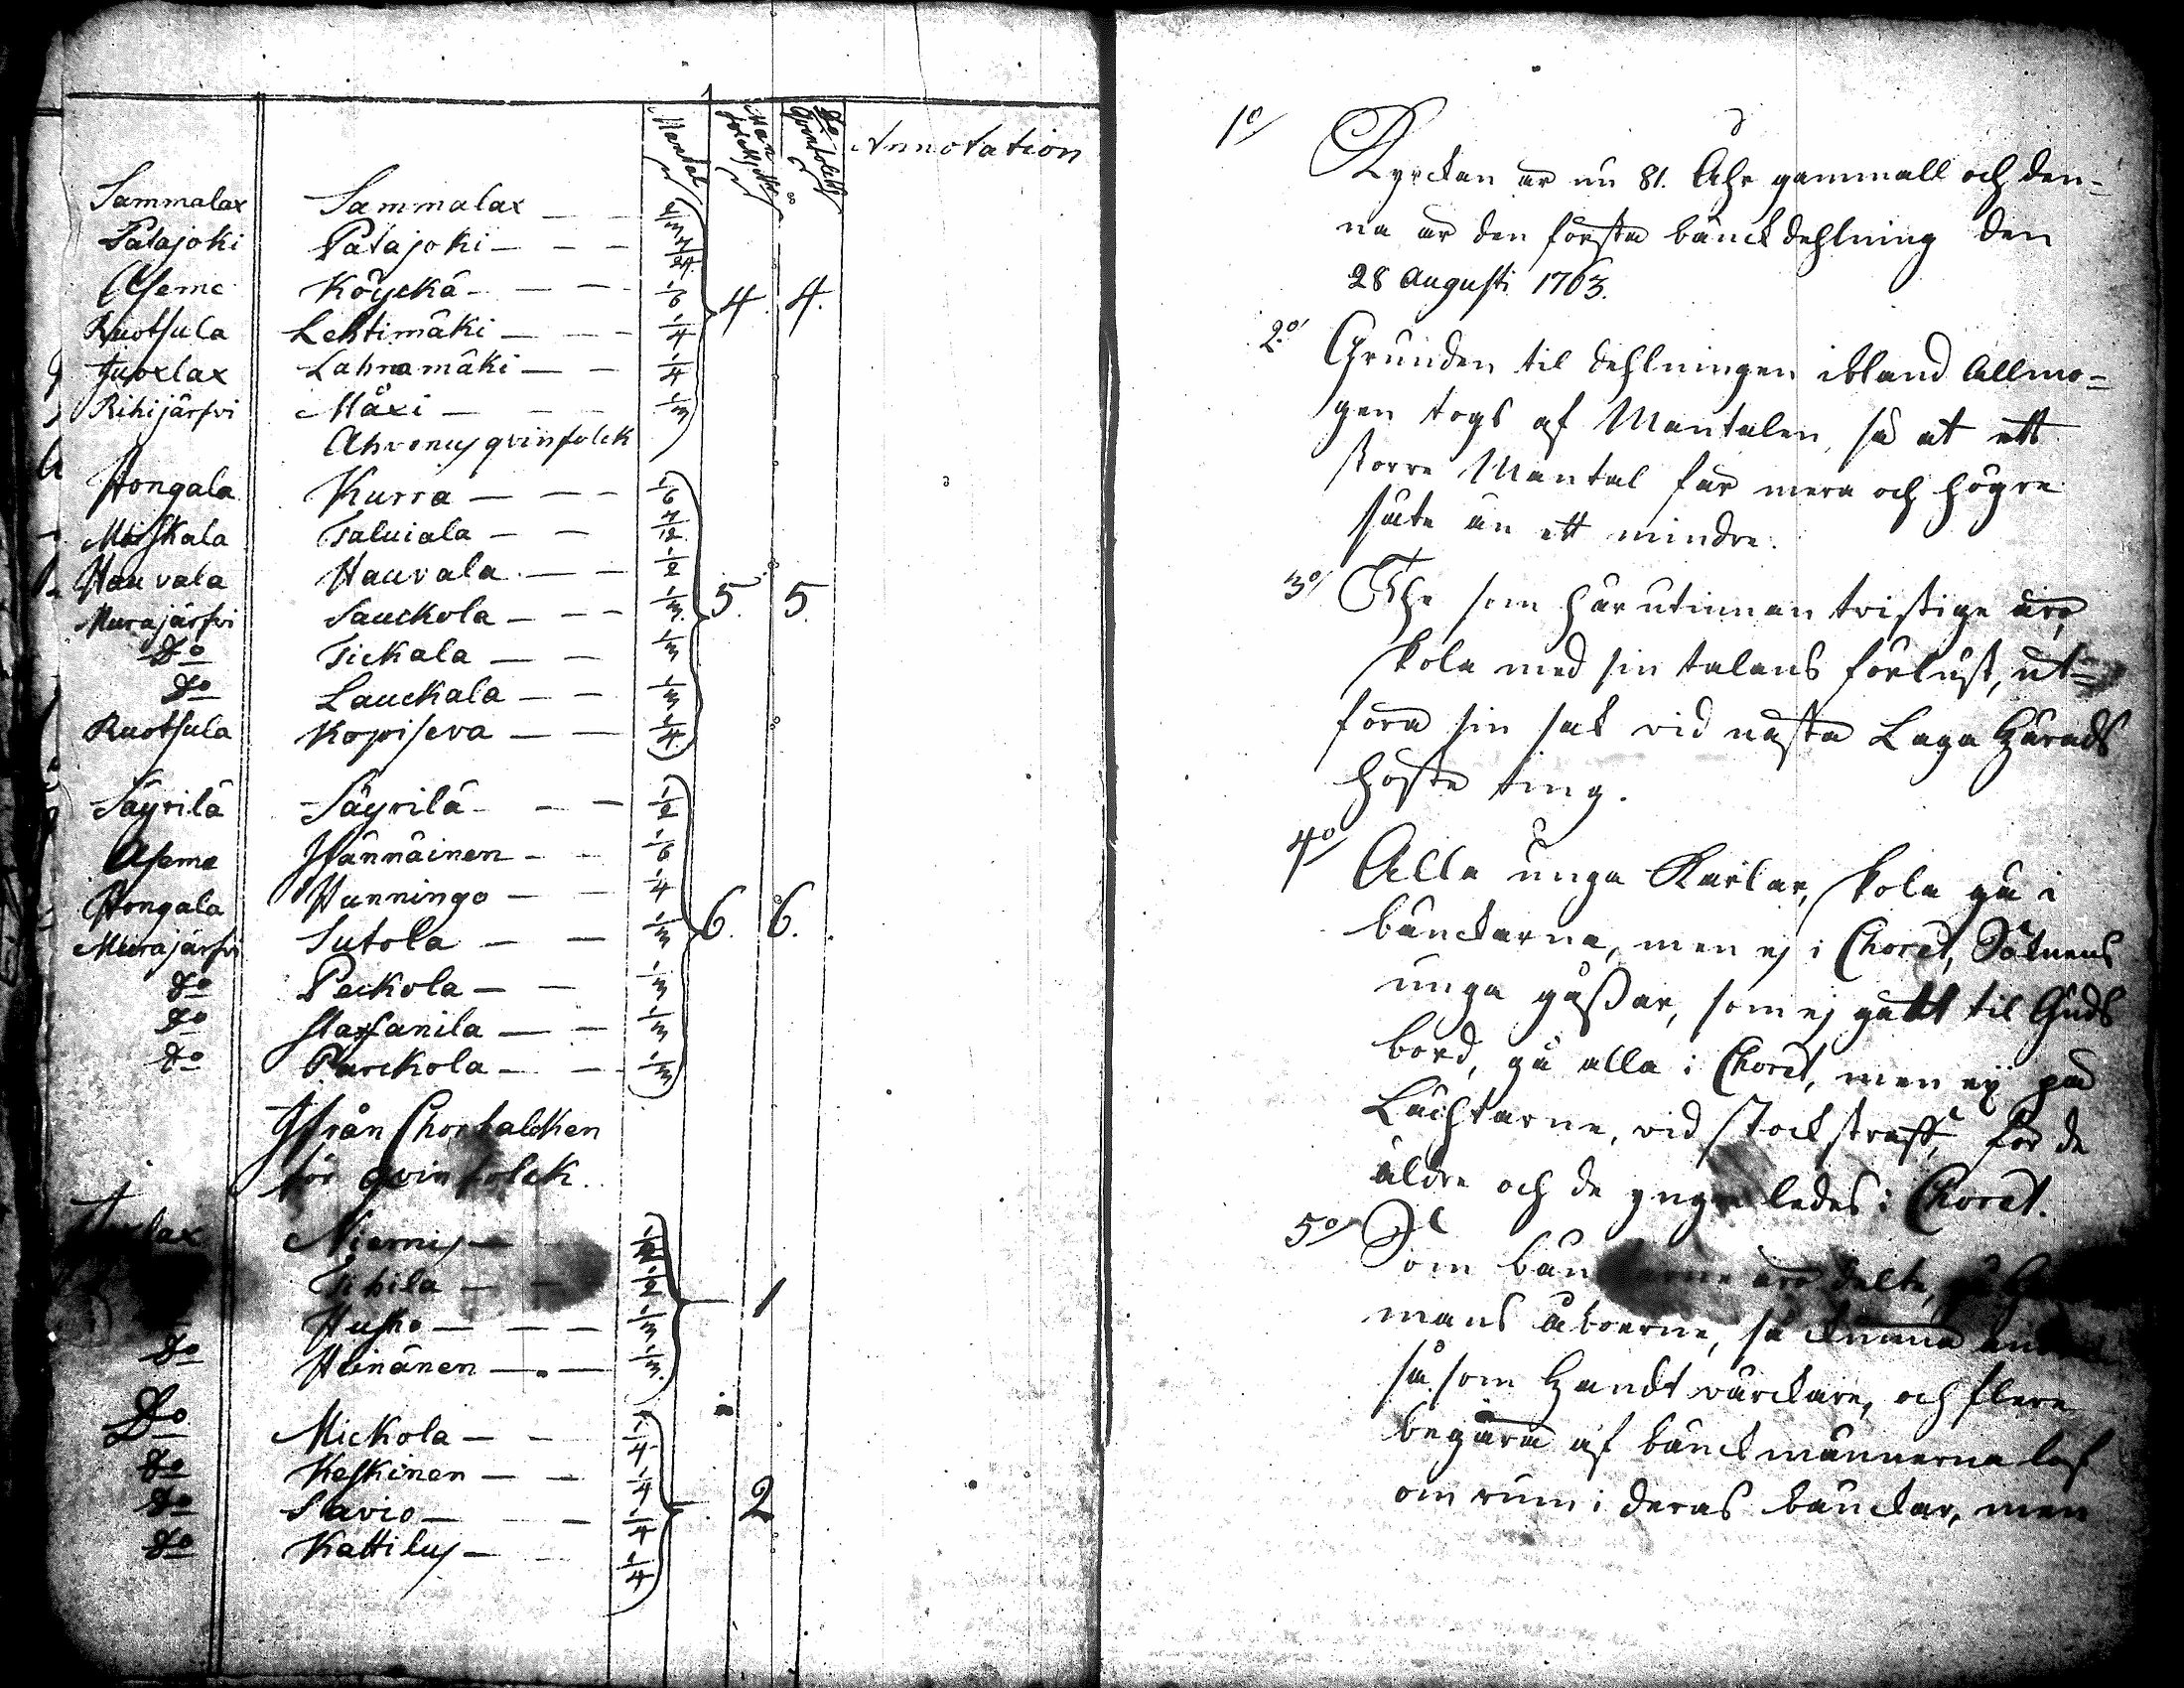 Mantal
Manfolck
Do Qvinfolck
Annotation
Sammalax Sammalax — — 2/3
Patajoki Patajoki — — — 7/24
Aseme Köÿckä — — — 1/6 4. 4.
Ruotsula Lehtimäki — — — 1/4
Juvxlax Lahnamäki — — 1/4
Rihijärfvi Mäxi — — — 1/3
Ahvenus qvinfolck
Hongala Kurra — — — 1/6
Moiskala Taluiala — — 7/12
Hauvala Hauvala — — 1/2
Murajärfvi Sauckola — — — 1/3 5. 5.
Do Tickala — — 1/3
Do Lauckala — — 1/3
Ruotsula Kopiseva — — 1/4
Säyrilä Säyrilä — — — 1/2
Aseme Hännäinen — — 1/6
Hongala Hunningo — — 1/4
Murajärfvi Sutola — — 1/3 6. 6.
Do Peckola — — 1/3
Do Starfanila — — 1/3
Do Purckola — — 1/3
Ifrån Chorbalcken
för qvinfolck.
Niemis —
Tihila — — 1/2 1
Husko — — — 1/3
Do Heinänen — — 1/3
Do Mickola — — 1/4
Do Keskinen — — 1/4
Do Savio — — 1/4 2
Do Kattilus — — 1/4
1o/ Kyrckan är nu 81. Åhr gammall och den-
na är den första bänckdehlning den
28 Augusti 1763.
2o/ Grunden til dehlningen ibland Allmo-
gen togs af Mantalen, så at ett
större Mantal får mera och högre
säte än ett mindre.
3o/ The som härutinnan tvistige äro,
skola med sin talans förlust, ut-
föra sin sak vid nästa Laga Härads
höste ting.
4o/ Alla unga Karlar, skola gå i
bänckarna, men ej i Choret, Såsom
unga gåssar, som ej gådt til Guds
bord, gå alla i Choret, men ej på
Lächtarne, vid stockstraff, för de
äldre och de yngre ledes i Choret.
5o/ Som bänckarne äro delte, på
mans åboerne, så kunna andre
så som Handtvärckare, och flere
begära af bänckmännerna lof
om rum i deras bänckar, men